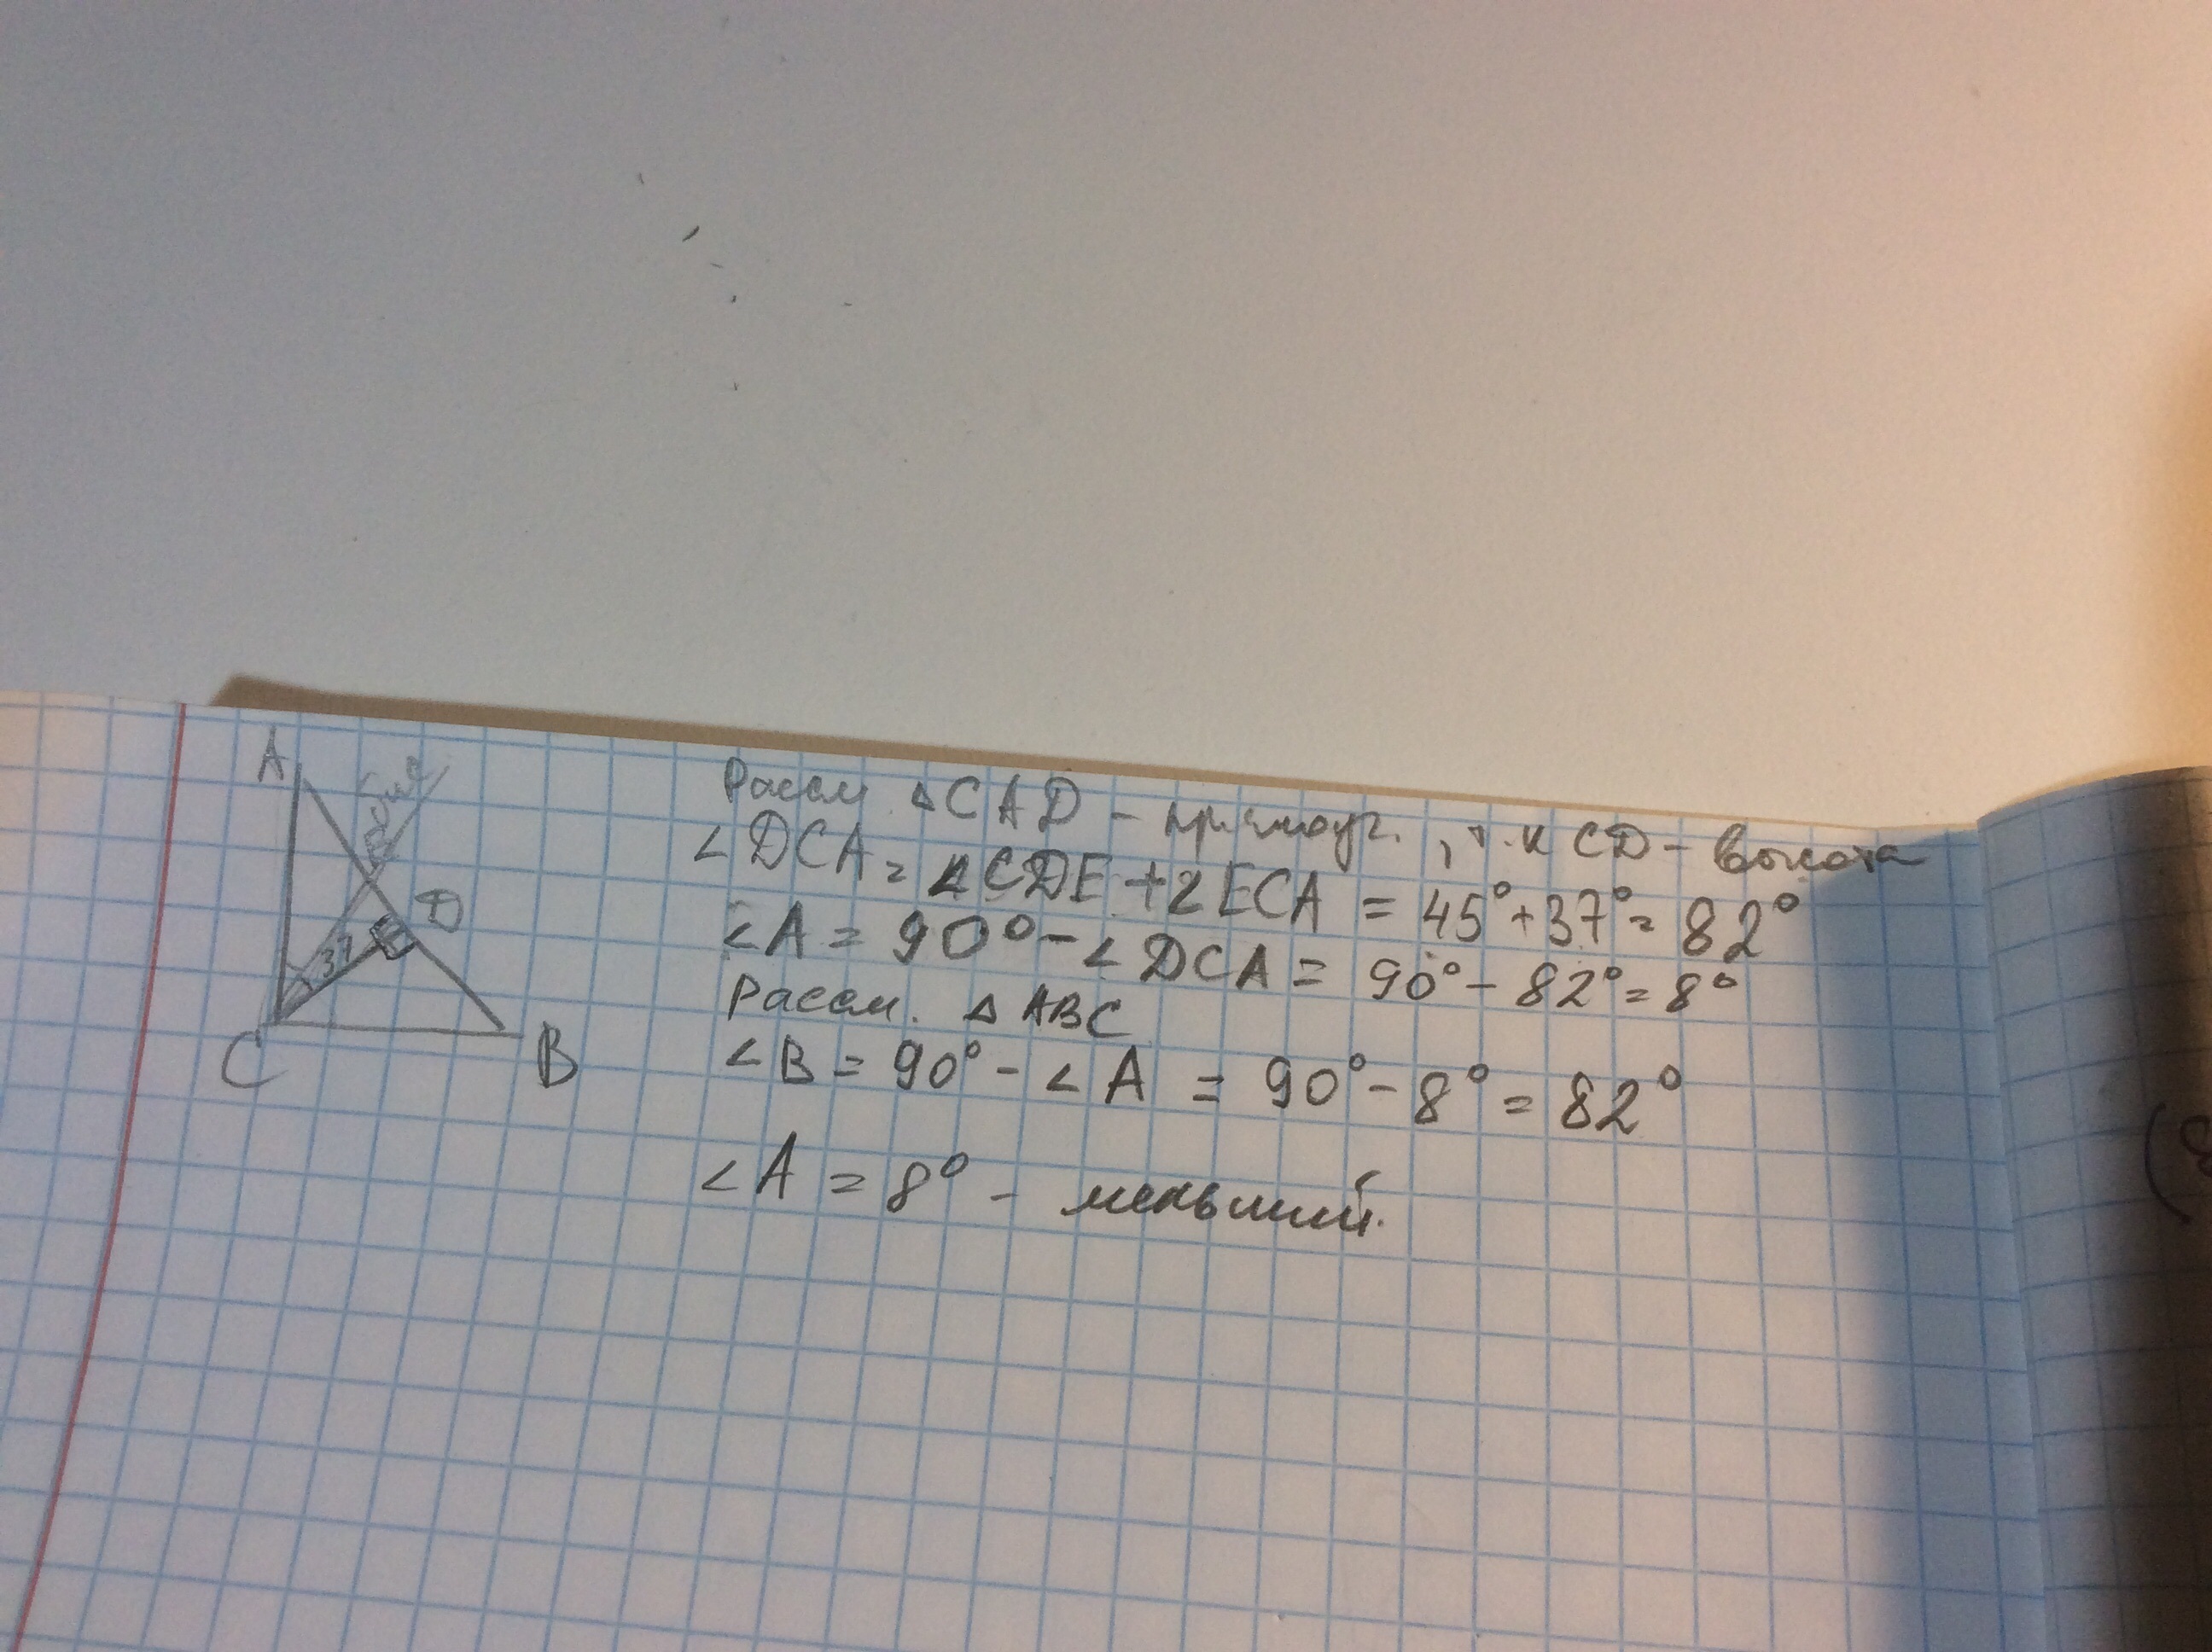 A
D
37
C
B
Рассм. △CAD - прямоуг., т.к CD - высота
∠DCA = ∠CDE + ∠ECA = 45° + 37° = 82°
∠A = 90° - ∠DCA = 90° - 82° = 8°
Рассм. △ABC
∠B = 90° - ∠A = 90° - 8° = 82°
∠A = 8° - меньший.